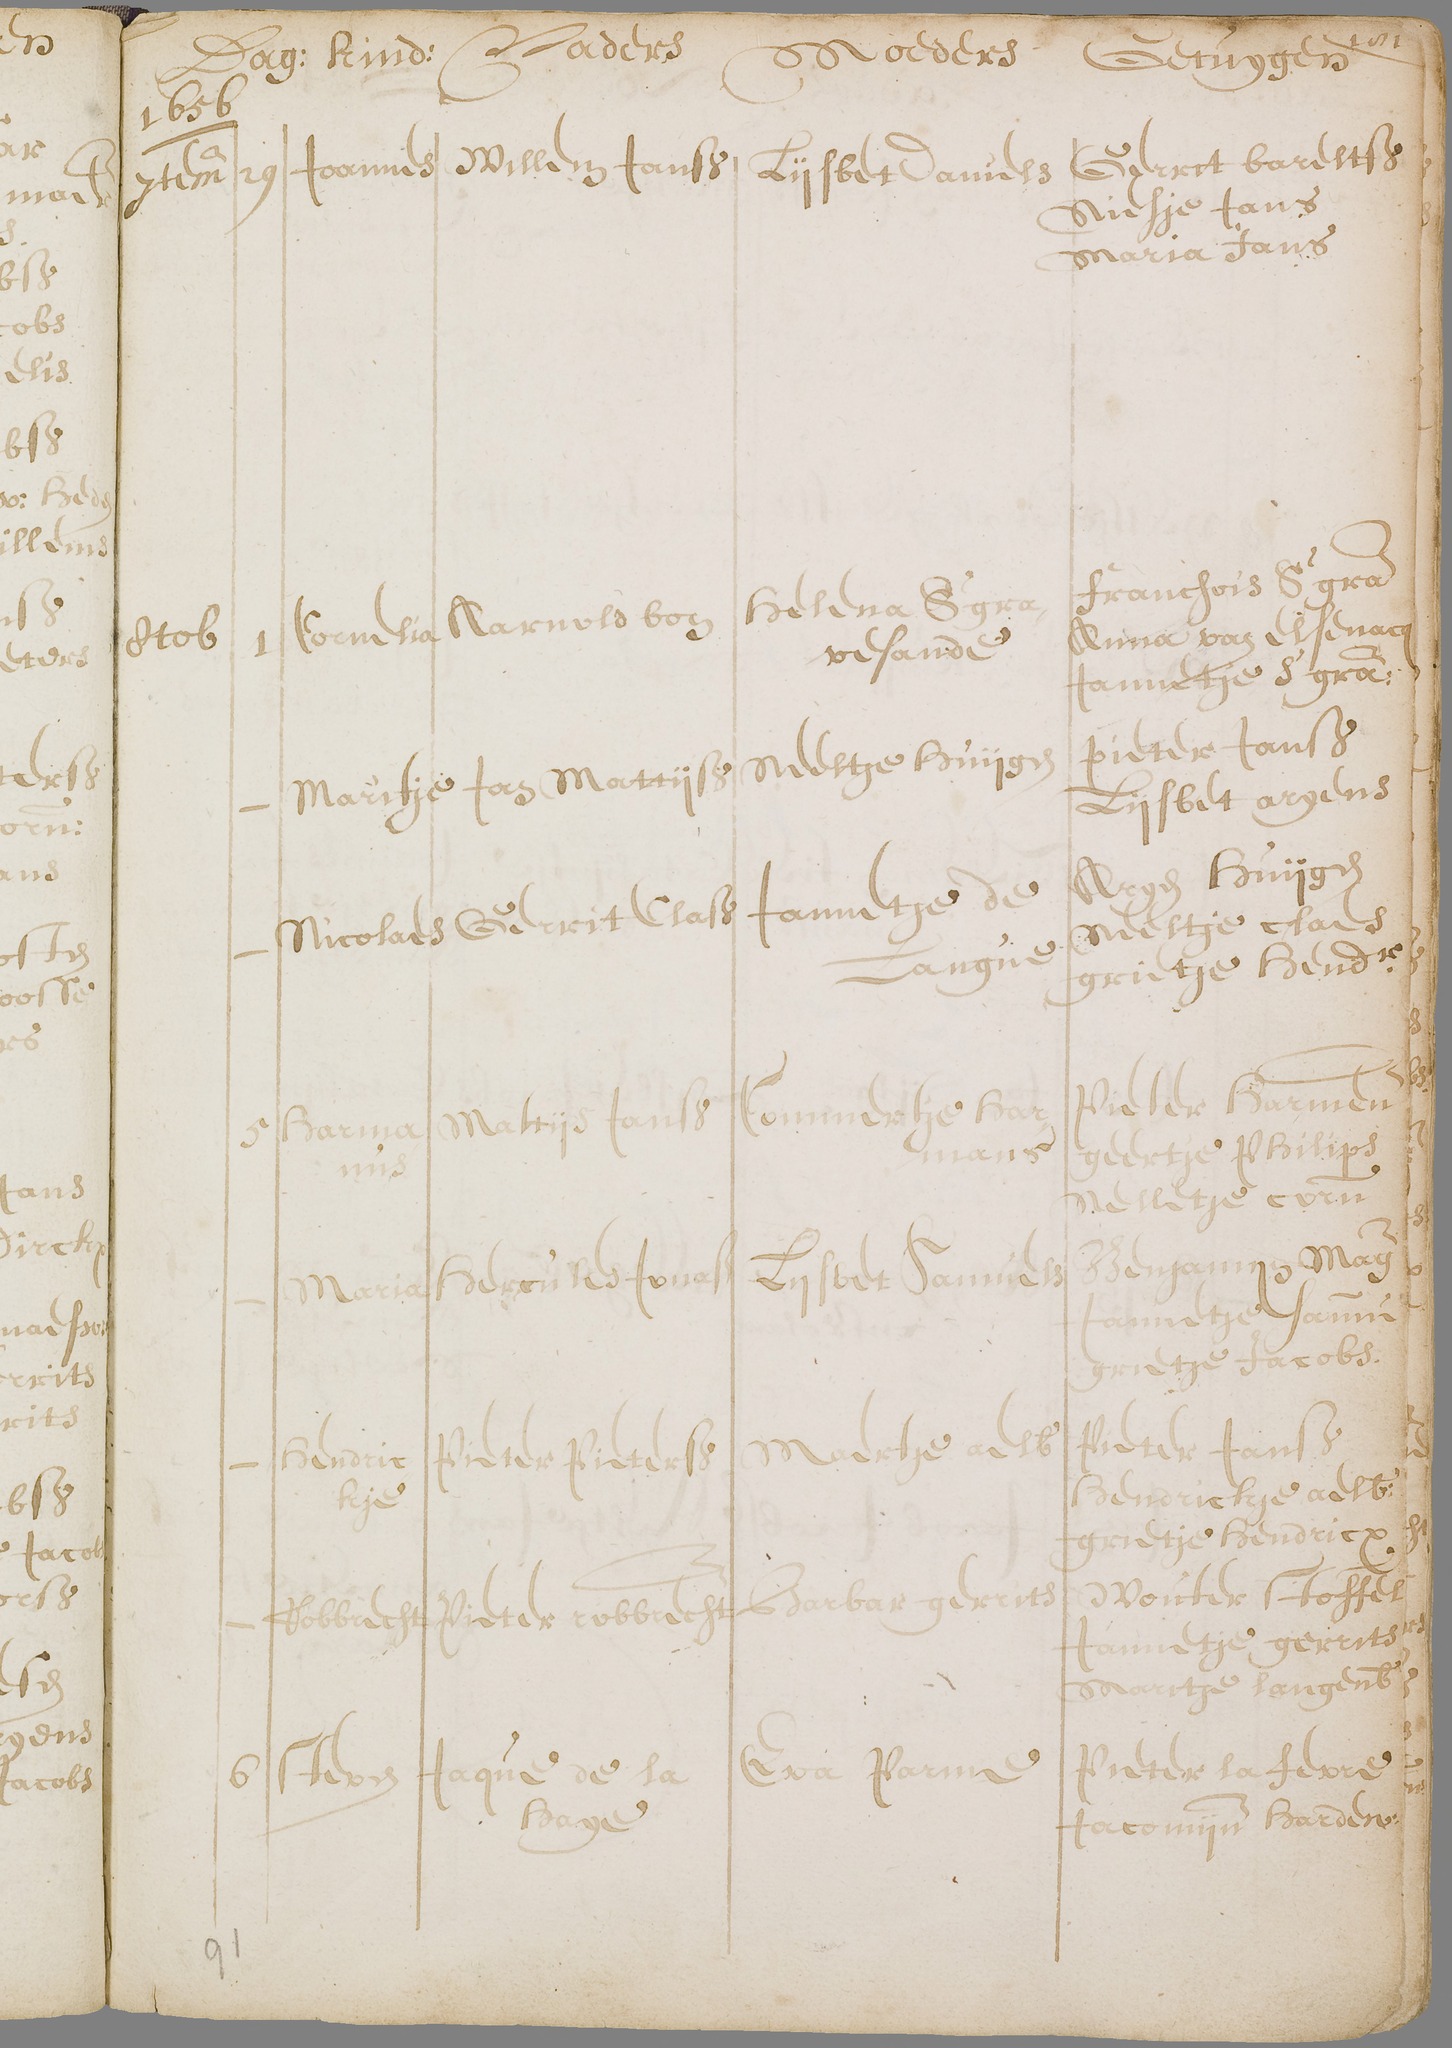 Dag: kind: Vaders Moeders Getuygen
1656
7tem 29 Joannes Willem Janss Lijsbet Daniels Gerrit barentss
Niesje Jans
Maria Jans
8tob 1 Cornelia Aarnold bon Helena S'gra-
vesande
franchois S'gra
Anna van Elsenacq
Jannetje S'gra:
- Maritje Jan Mattijss Neeltje Huijgen pieter Janss
Lijsbet aryens
- Nicolaes Gerrit Class Jannetje de
Langue
Aryen Huijgen
Neeltje claes
grietje Hendr.
5 Harma
nus
Mattijs Janss Commertje Har
mans
Pieter Harmen
geertje Philips
Nelletje corn
- Maria Hercules Jonass Lijsbet Samuels Benjamin May
Jannetje Samu
grietje Jacobs.
- Hendric
kje
Pieter Pieterss Maertje aelb Pieter Janss
Hendrickje aelb:
grietje Hendricx
- Robbrecht Pieter robbrecht Barbar gerrits Wouter Stoffel
Jannetje gerrits
Maritje langenb
6 Steven Jaque de la
Haye
Eva Parme Pieter la fevre
Jacomijn Harden:
91